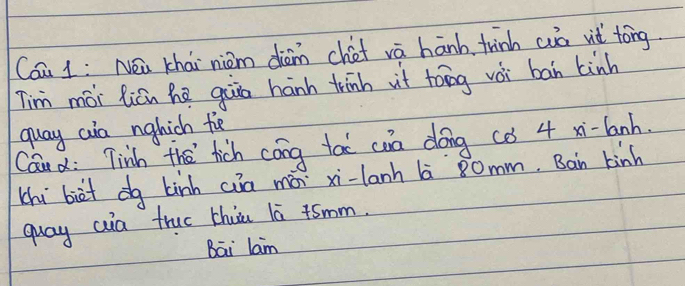 Câu 1: Nêu khái niệm điểm chết và hành trình của vít tông.
Tìm mối liên hệ giữa hành trình vít tông với bán kính
quay của nghịch tỉ
Câu 2: Tính thể tích công tác của động cơ 4 xi-lanh.
Khi biết đg kính của mỗi xi-lanh là 80mm. Bán kính
quay của trục khuỷu là 75mm.
Bài làm